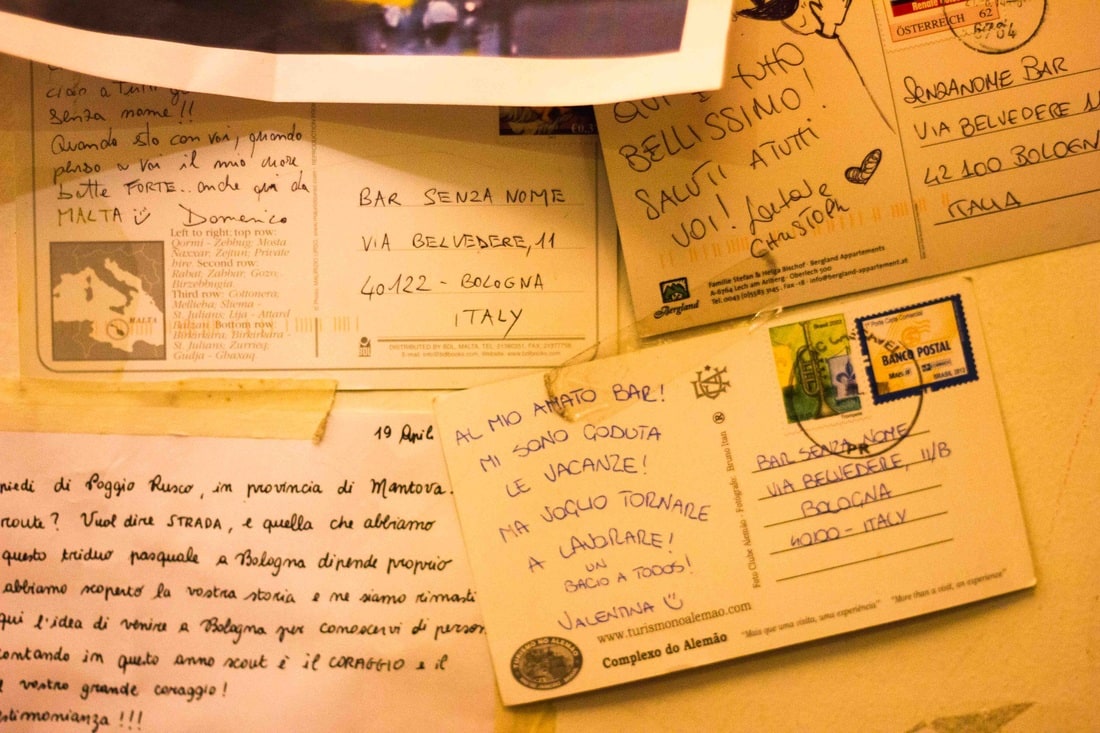 ciao a tutti
senza nome!!
Quando sto con voi, quando
penso a voi il mio cuore
batte FORTE.. anche qui da
MALTA Domenico
Left to right; top row:
Qormi - Zebbug; Mosta
Naxxar, Zejtun; Private
hire. Second row:
Rabat, Zabbar, Gozo,
Birzebbugia.
Third row: Cottonera,
Mellieha; Sliema -
St. Julians; Lija - Attard
Balzan. Bottom row:
Birkirkara, Birkirkara -
St. Julians; Zurrieq,
Gudja - Ghaxaq.
MALTA
€0.3
BAR SENZA NOME
VIA BELVEDERE, 11
40122 - BOLOGNA
ITALY
BDL
DISTRIBUTED BY BDL, MALTA.
QUI È TUTTO
BELLISSIMO!
SALUTI A TUTTI
VOI!
CHRISTOPH
Bergland
Familie Stefan & Helga Bischof · Bergland Appartements
A-6764 Lech am Arlberg · Oberlech 500
info@bergland-appartement.at
ÖSTERREICH 62
6764
SENZANOME BAR
VIA BELVEDERE 11
42100 BOLOGN
ITALIA
19 April
piedi di Poggio Rusco, in provincia di Mantova.
route? Vuol dire STRADA, e quella che abbiamo
questo triduo pasquale a Bologna dipende proprio
abbiamo scoperto la vostra storia e ne siamo rimasti
qui l'idea di venire a Bologna per conoscervi di person
contando in questo anno scout è il CORAGGIO e il
vostro grande coraggio!
estimonianza!!!
AL MIO AMATO BAR!
MI SONO GODUTA
LE VACANZE!
MA VOGLIO TORNARE
A LAVORARE!
UN
BACIO A TODOS!
VALENTINA
www.turismonoalemao.com
Complexo do Alemão
"Mais que uma visita, uma experiência" "More than a visit, an experience"
TURISMO NO ALEMÃO
Foto Clube Alemão - Fotógrafo: Bruno Itan
Brasil
1º Porte Carta Comercial
BANCO POSTAL
BRASIL 2012
PR
BAR SENZA NOME
VIA BELVEDERE, 11/B
BOLOGNA
40100 - ITALY